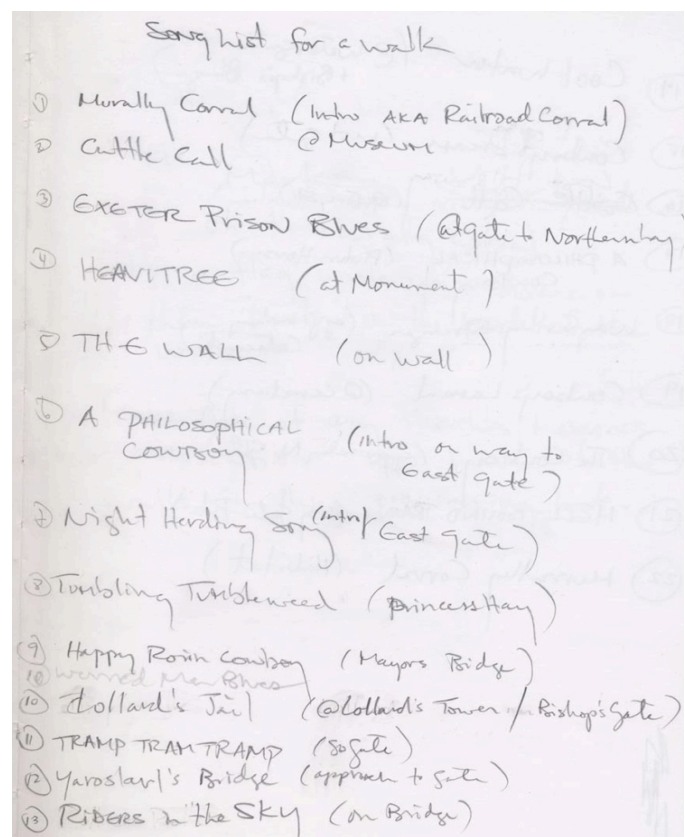 Song List for a walk
① Morally Corral (Intro AKA Railroad Corral)
② Cattle Call @ Museum
③ EXETER PRISON BLUES (at gate to Northernhay
④ HEAVITREE (at Monument)
5 THE WALL (on wall)
⑥ A PHILOSOPHICAL
COWBOY (intro on way to
East Gate)
⑦ Night Herding Song (intro/ East Gate)
⑧ Tumbling Tumbleweed (Princesshay)
⑨ Happy Roving Cowboy (Mayors Bridge)
10 Worried Man Blues
⑩ Lollard's Jail (@Lollard's Tower / Bishop's Gate)
⑪ TRAMP TRAM TRAMP (So gate)
⑫ Yaroslavl's Bridge (approach to gate)
⑬ RIDERS In the SKY (on Bridge)